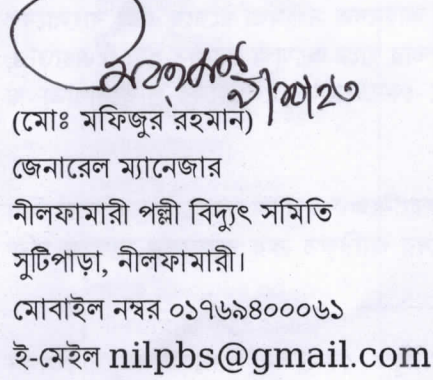 (মোঃ মফিজুর রহমান)
জেনারেল ম্যানেজার
নীলফামারী পল্লী বিদ্যুৎ সমিতি
সুটিপাড়া, নীলফামারী।
মোবাইল নম্বর ০১৭৬৯৪০০০৬১
ই-মেইল nilpbs@gmail.com